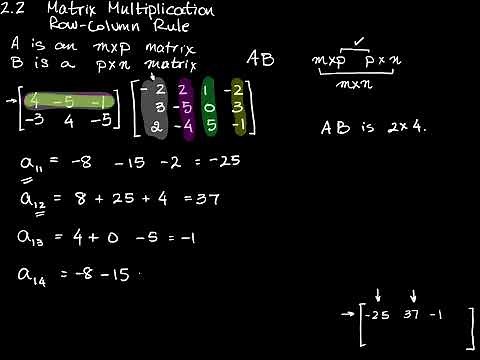 2.2 Matrix Multiplication
Row-Column Rule
A is an m×p matrix
B is a p×n matrix
AB
m×p p×n
m×n
AB is 2×4.
→ [ 4 -5 -1 ] [ -2 2 1 -2 ]
[ -3 4 -5 ] [ 3 -5 0 3 ]
[ 2 -4 5 -1 ]
a₁₁ = -8 -15 -2 = -25
a₁₂ = 8 + 25 + 4 = 37
a₁₃ = 4 + 0 -5 = -1
a₁₄ = -8 -15
→ [ -25 37 -1 ]